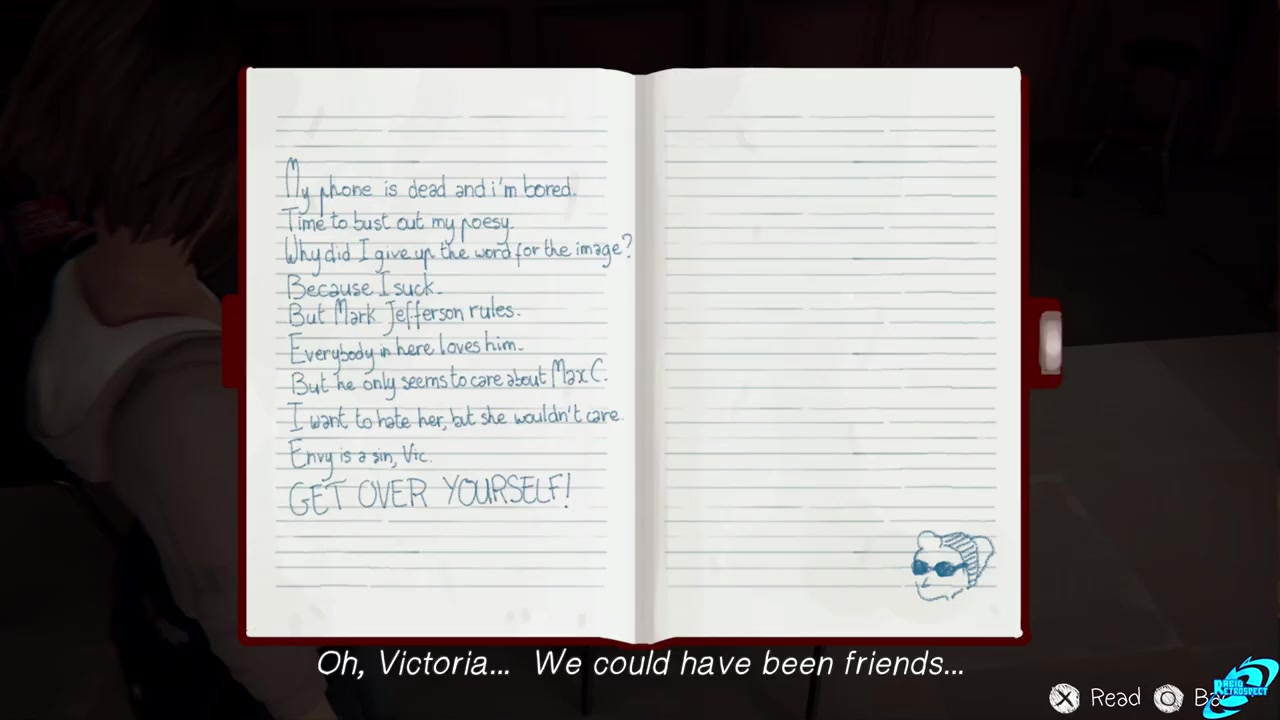 My phone is dead and i'm bored.
Time to bust out my poesy.
Why did I give up the word for the image?
Because I suck.
But Mark Jefferson rules.
Everybody in here loves him.
But he only seems to care about Max C.
I want to hate her, but she wouldn't care.
Envy is a sin, Vic.
GET OVER YOURSELF!
Oh, Victoria... We could have been friends...
Read
RETROSPECT